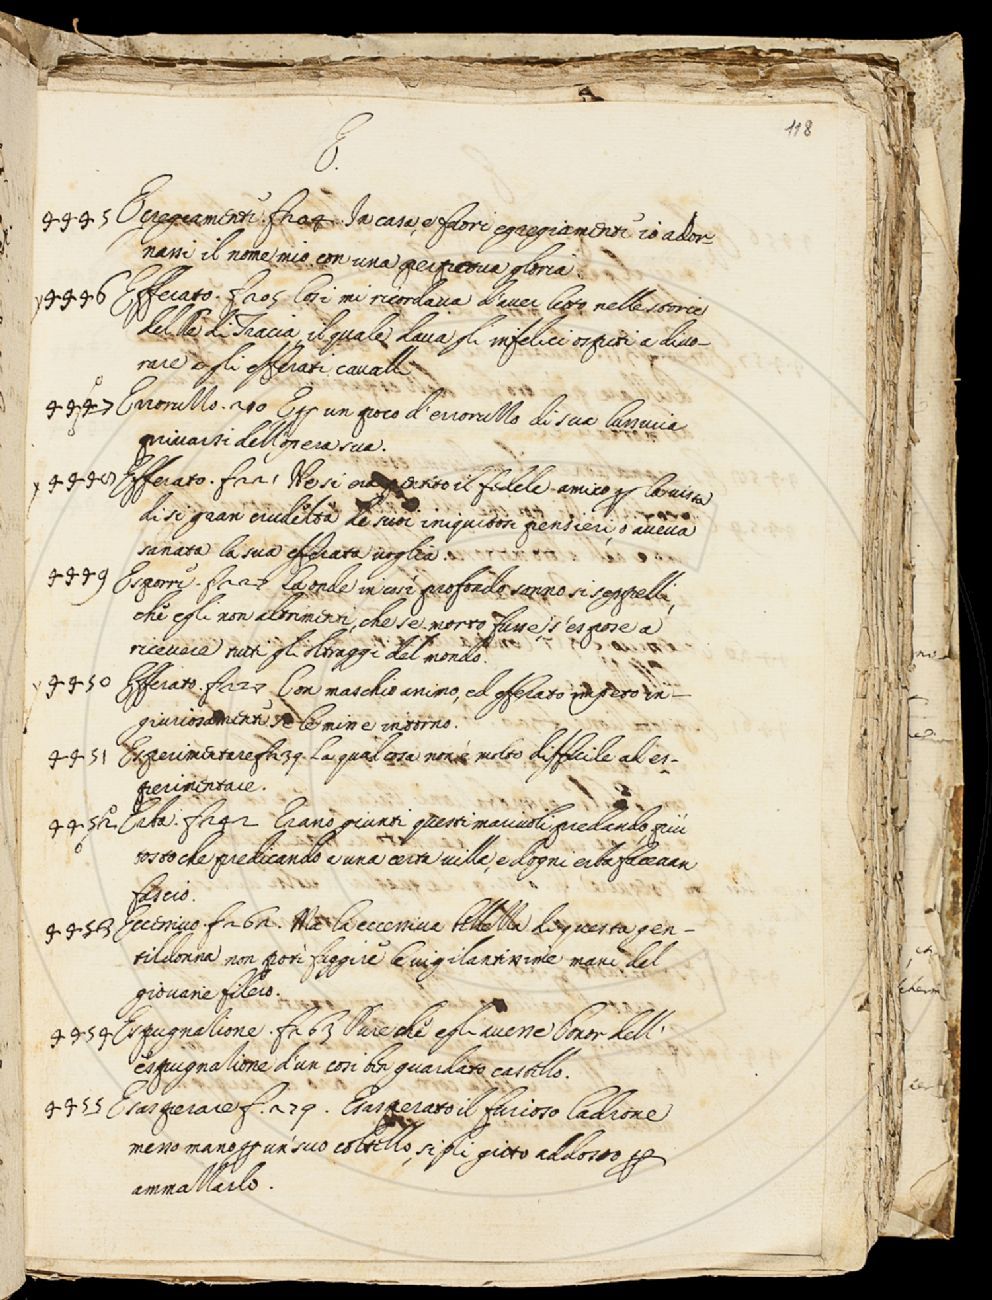 118
E.
4445 Egregiamente. f. 204. In casa, e fuori egregiamente io ador-
nassi il nome mio con una perpetua gloria.
4446 Efferato. f. 205 Così mi ricordava d'aver letto nelle storie
del Re di Tracia, il quale dava gli infelici ospiti a divo-
rare a gli efferati cavalli
4447 Errorullo. 210 Ess un gioco d'errorullo di sua
privarsi dell'opera sua.
4448 Efferato. f. 221 Ne si era il fidele amico per la vista
di si gran crudeltà de suoi iniquitosi pensieri, o aveva
sanata la sua efferata voglia.
4449 Esporre. f. 227 Laonde in così profondo sonno si seppellì,
che egli non altrimenti, che se morto fusse, s'espose a
ricevere tutti gli oltraggi del mondo.
4450 Efferato. f. 227 Con maschio animo, ed efferato impeto in-
giuriosamente le mine intorno.
4451 Esperimentare f. 239. La qual cosa non è molto difficile ad es-
perimentare.
4452 Erba. f. 242 Erano giunti questi marivoli predando più
tosto che predicando a una certa villa, e d'ogni erba facevan
fascio.
4453 Eccessivo. f. 262. Ma la eccessiva bellezza di questa gen-
tildonna non potè fuggire le vigilantissime mani del
giovane fileio.
4454 Espugnazione. f. 263 Pure che egli avesse l'onor dell'
espugnazione d'un così ben guardato castello.
4455 Esasperare f. 279. Esasperato il furioso ladrone
messo mano per un suo coltello, si gli gittò addosso per
ammazzarlo.